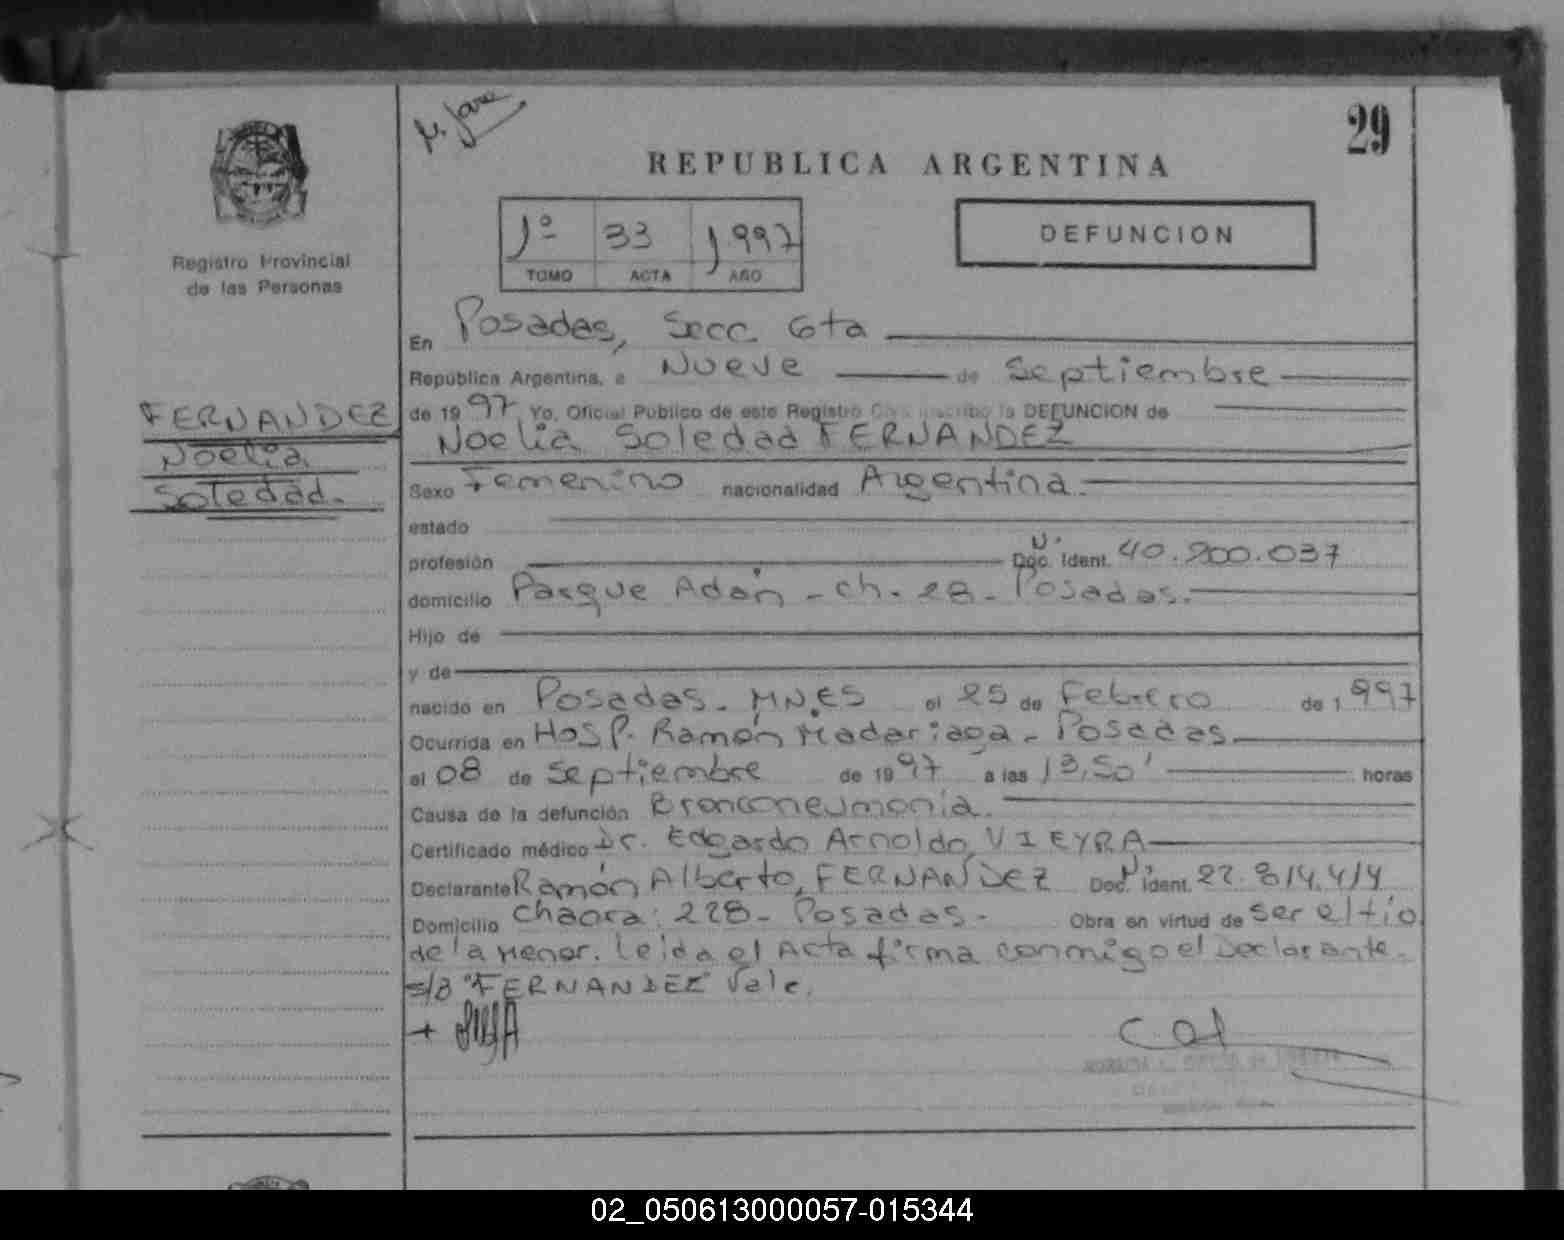 29
REPUBLICA ARGENTINA
1º 33 1997
TOMO ACTA AÑO
DEFUNCION
Registro Provincial
de las Personas
FERNANDEZ
Noelia
Soledad.
En Posadas, Secc. 6ta
República Argentina, a Nueve de Septiembre
de 1997 Yo, Oficial Público de este Registro Civil inscribo la DEFUNCION de
Noelia Soledad FERNANDEZ
Sexo Femenino nacionalidad Argentina.
estado
profesión Doc. Ident. Nº 40.200.037
domicilio Parque Adán - ch. 28 - Posadas.
Hijo de
y de
nacido en Posadas - MN.ES el 25 de Febrero de 1997
Ocurrida en Hosp. Ramón Madariaga - Posadas
el 08 de Septiembre de 1997 a las 13,50' horas
Causa de la defunción Bronconeumonia.
Certificado médico Dr. Edgardo Arnoldo VIEYRA
Declarante Ramón Alberto, FERNANDEZ Doc. Ident. Nº 22.814.414
Domicilio Chacra: 228 - Posadas - Obra en virtud de ser el tio
de la Menor. Leida el Acta firma conmigo el Declarante.
s/B "FERNANDEZ" Vale.
02_050613000057-015344